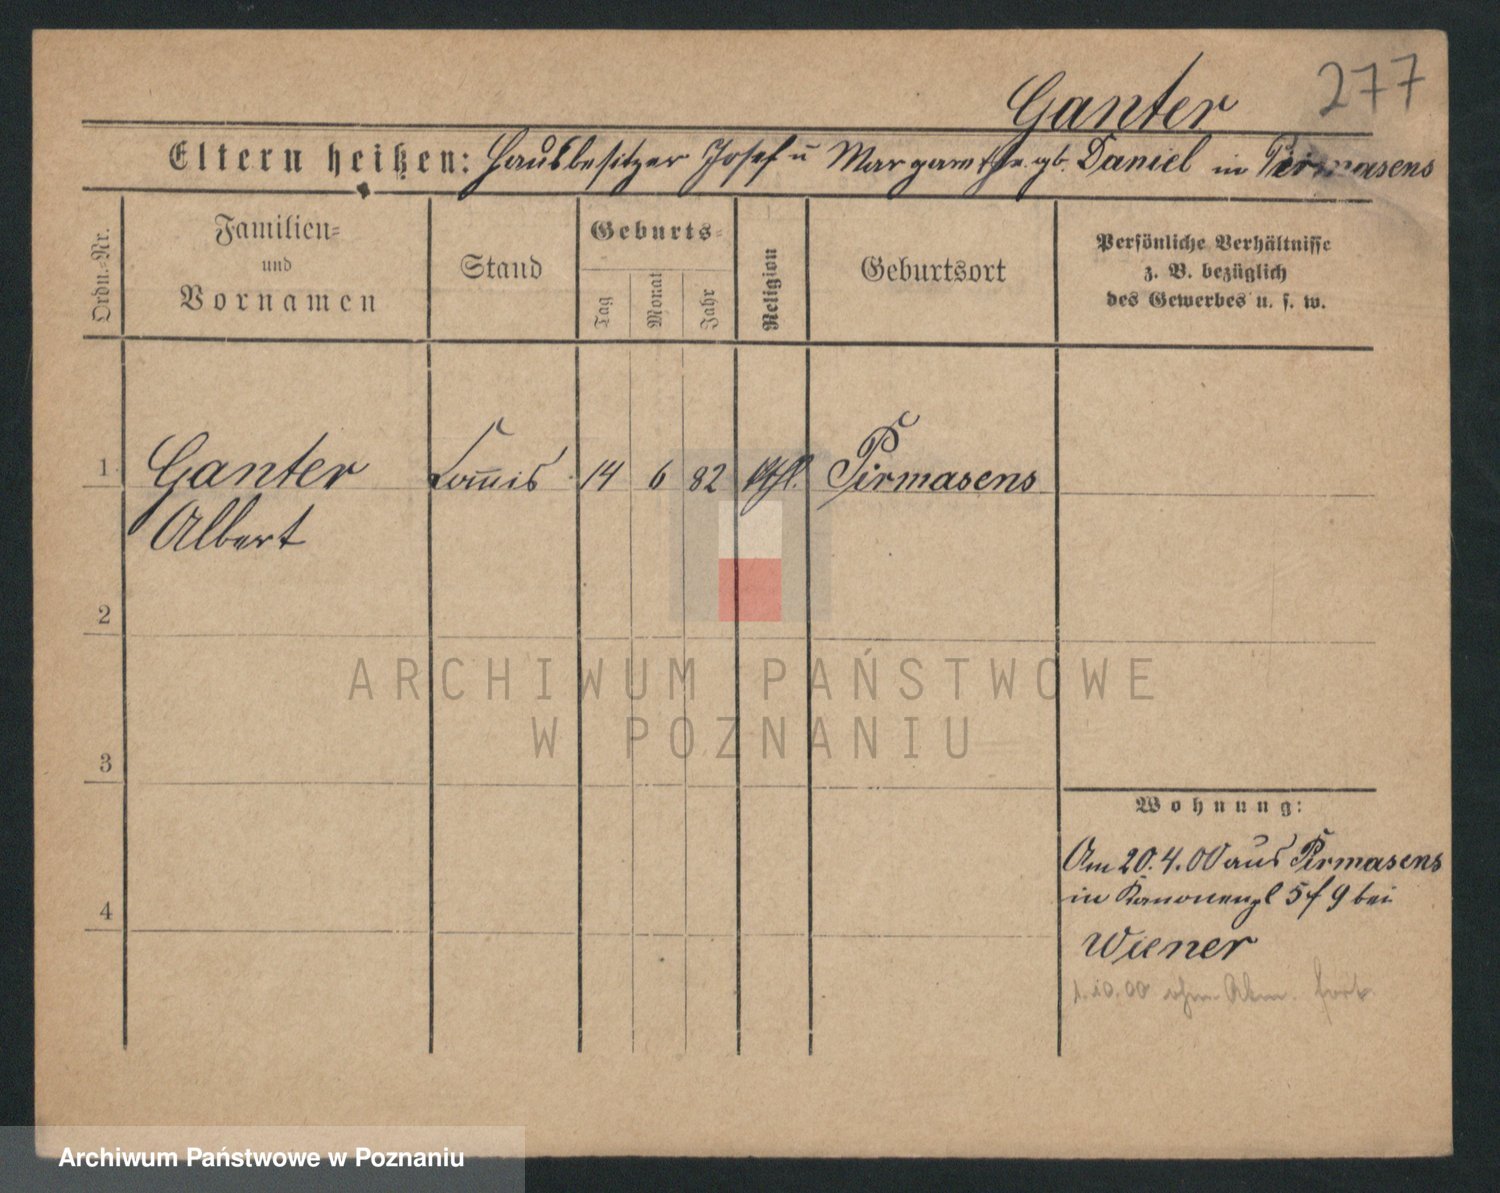 277
Ganter
Eltern heißen: Hausbesitzer Josef u Margarethe gb. Daniel in Pirmasens
Ordn.-Nr.
Familien-
und
Vornamen
Stand
Geburts-
Tag
Monat
Jahr
Religion
Geburtsort
Persönliche Verhältnisse
z. B. bezüglich
des Gewerbes u. s. w.
1 Ganter Commis 14 6 82 kthl. Pirmasens
Albert
2
3
4
Wohnung:
Am 20.4.00 aus Pirmasens
in Kanonenpl 5 f 9 bei
Wiener
1.10.00 ohne Abm. fort
ARCHIWUM PAŃSTWOWE
W POZNANIU
Archiwum Państwowe w Poznaniu